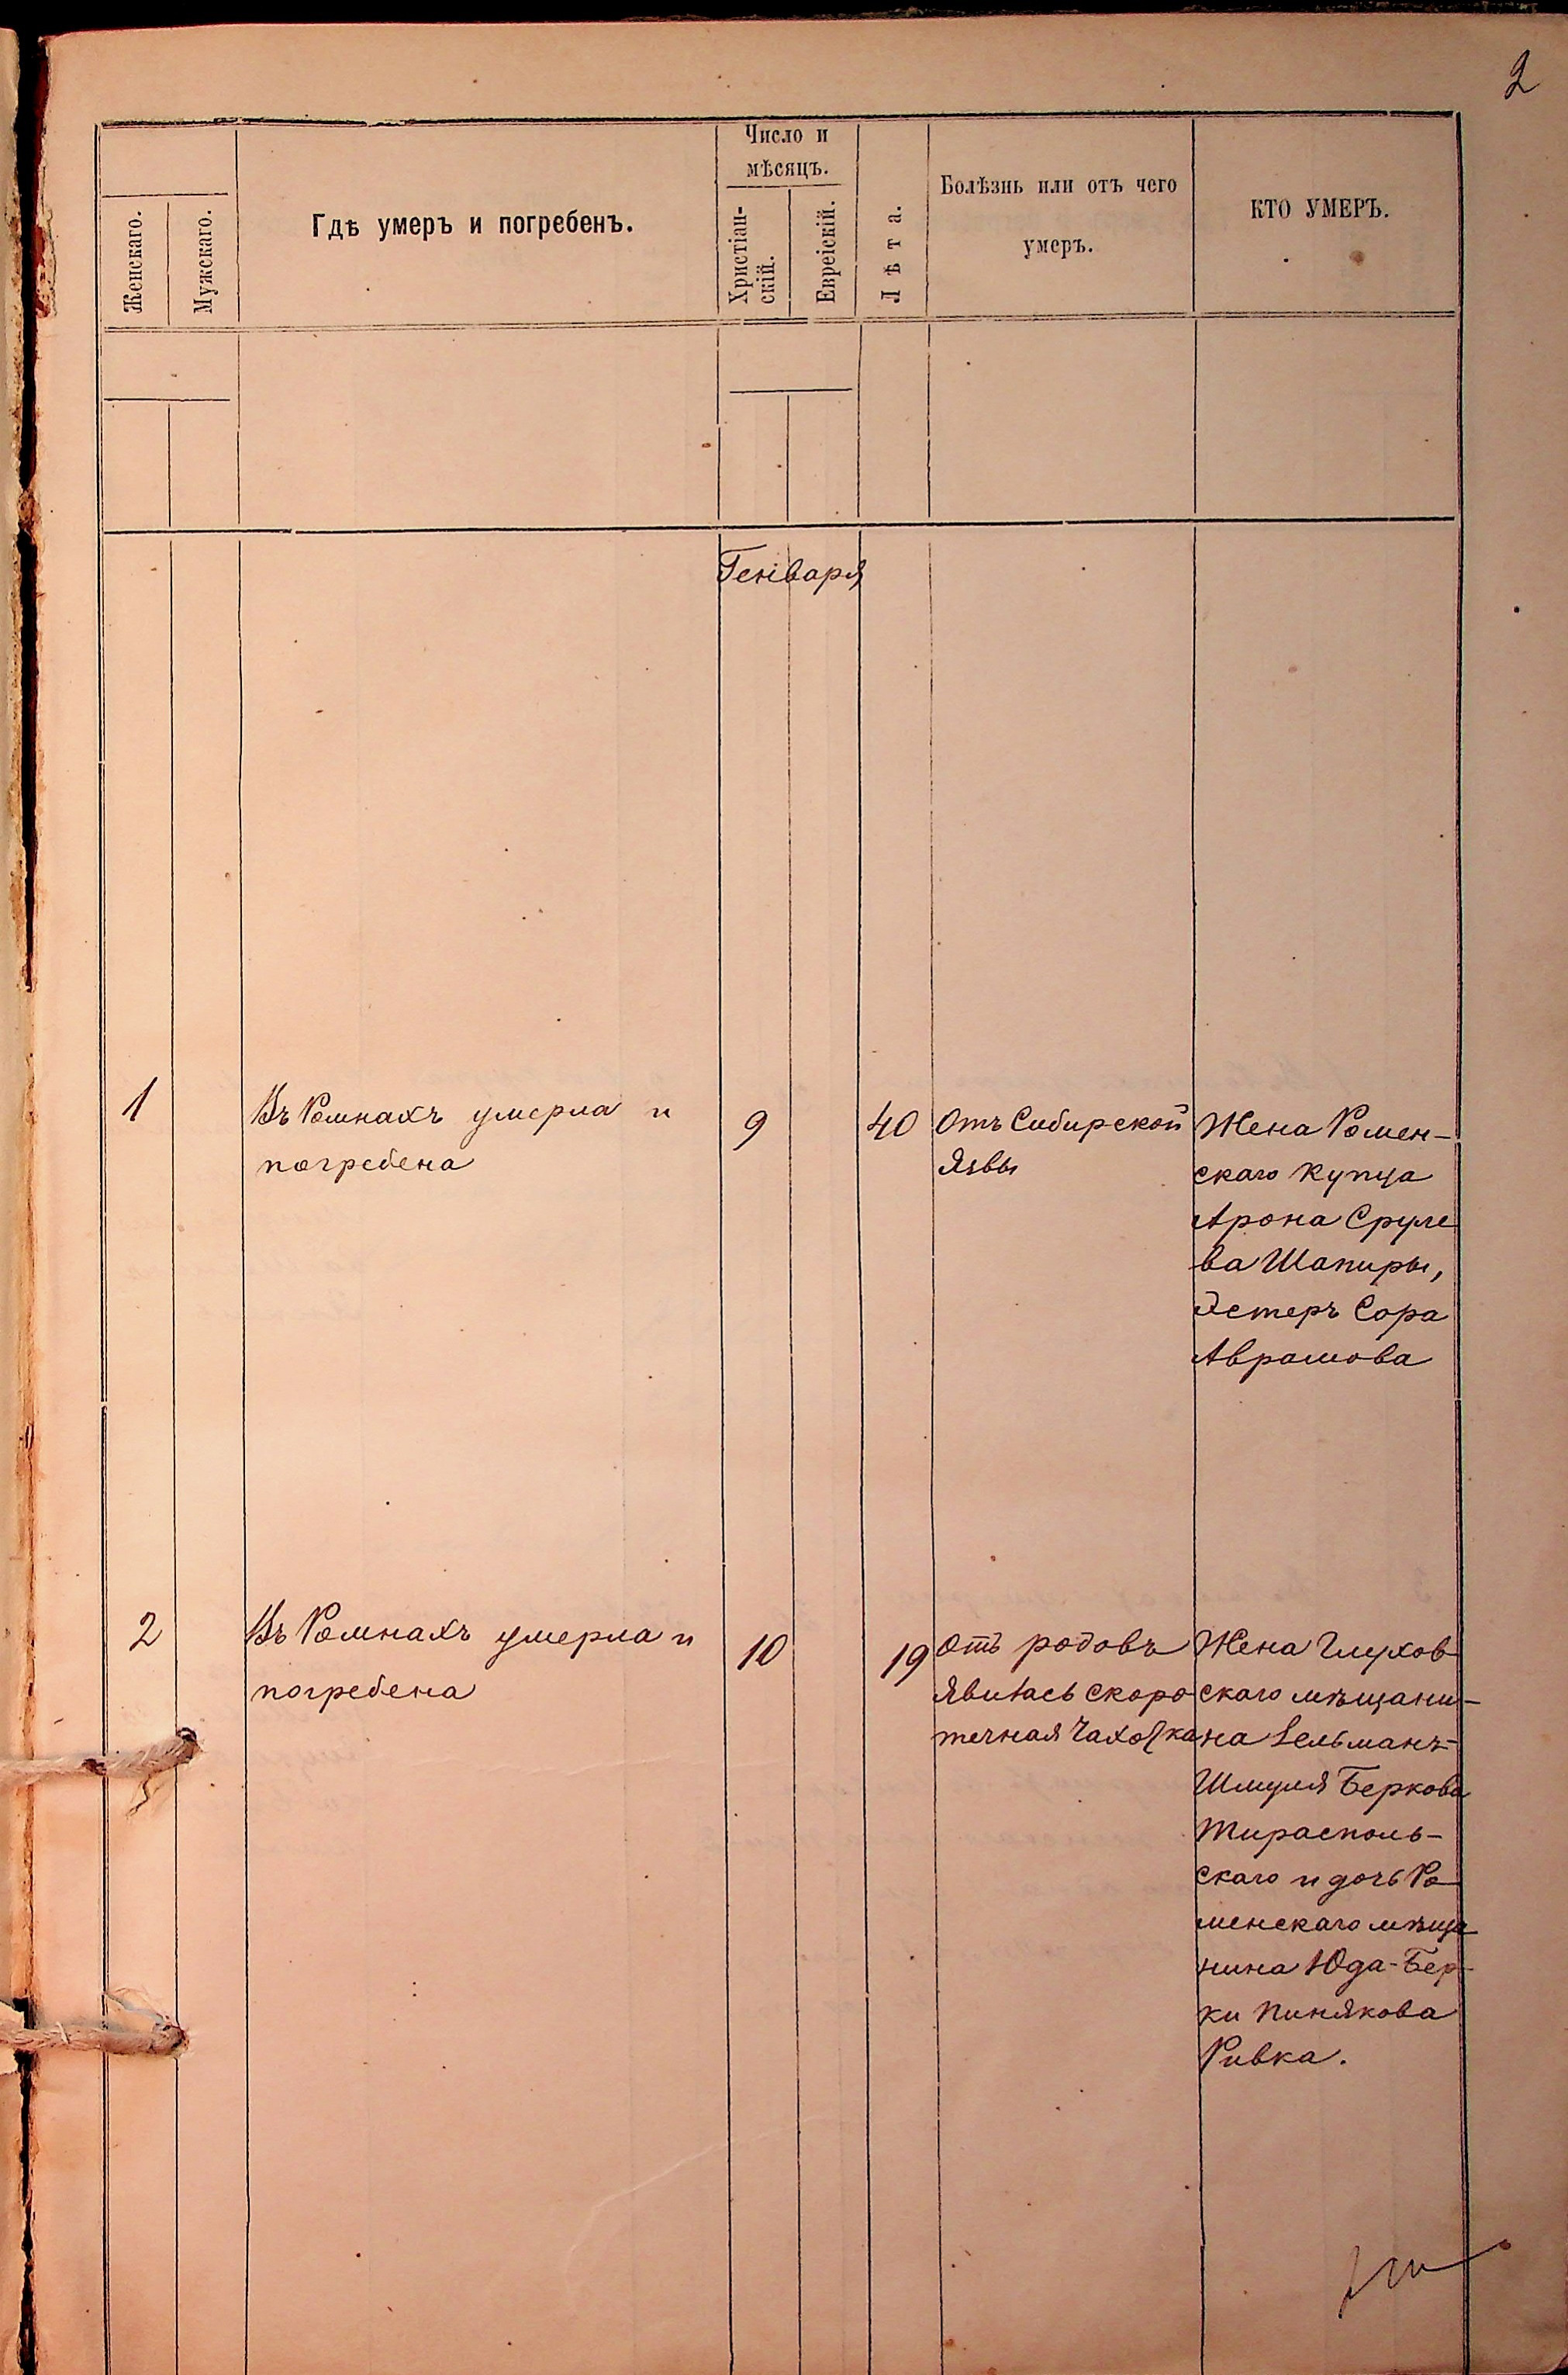 2
Женскаго.
Мужскаго.
Гдѣ умеръ и погребенъ.
Число и
мѣсяцъ.
Христіан-
скій.
Евреіскій.
Лѣта.
Болѣзнь или отъ чего
умеръ.
КТО УМЕРЪ.
Генваря
1
Въ Ромнахъ умерла и
погребена
9
40
Отъ Сибирской
Язвы
Жена Ромен-
скаго Купца
Арона Сруле
ва Шапиры,
Эстеръ Сора
Аврамова
2
Въ Ромнахъ умерла и
погребена
10
19
Отъ родовъ
Явилась скоро
течная Чахотка
Жена Глухов
скаго мѣщани-
на Зельманъ-
Шмуля Беркова
Тирасполь-
скаго и дочь Ро
менскаго мѣща
нина Юда-Бер-
ки Пинякова
Ривка.